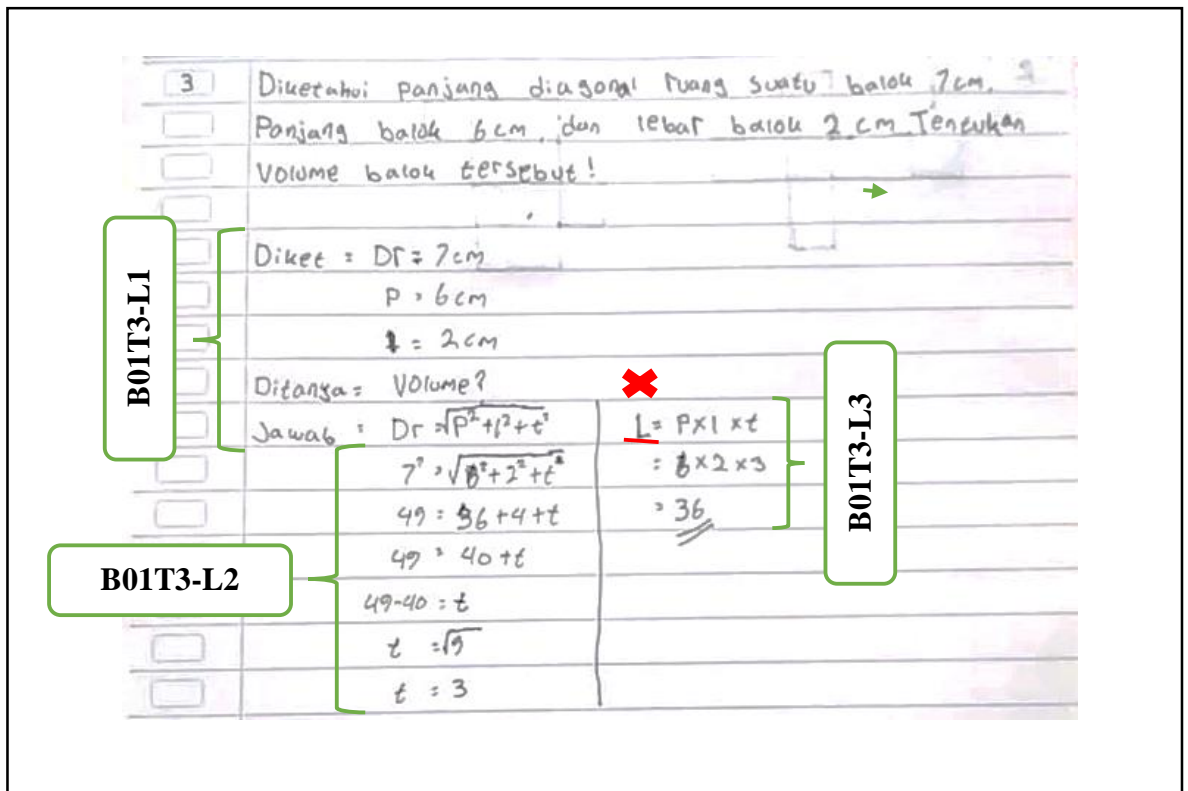 3 Diketahui panjang diagonal ruang suatu balok 7cm.
Panjang balok 6 cm, dan lebar balok 2 cm Tentukan
Volume balok tersebut!
B01T3-L1
Diket = Dr = 7cm
P = 6 cm
l = 2 cm
Ditanya = Volume?
Jawab = Dr = √P²+l²+t²
7² = √6²+2²+t²
49 = 36+4+t
49 = 40+t
49-40 = t
t = √9
t = 3
B01T3-L2
L = P×l×t
= 6×2×3
= 36
B01T3-L3